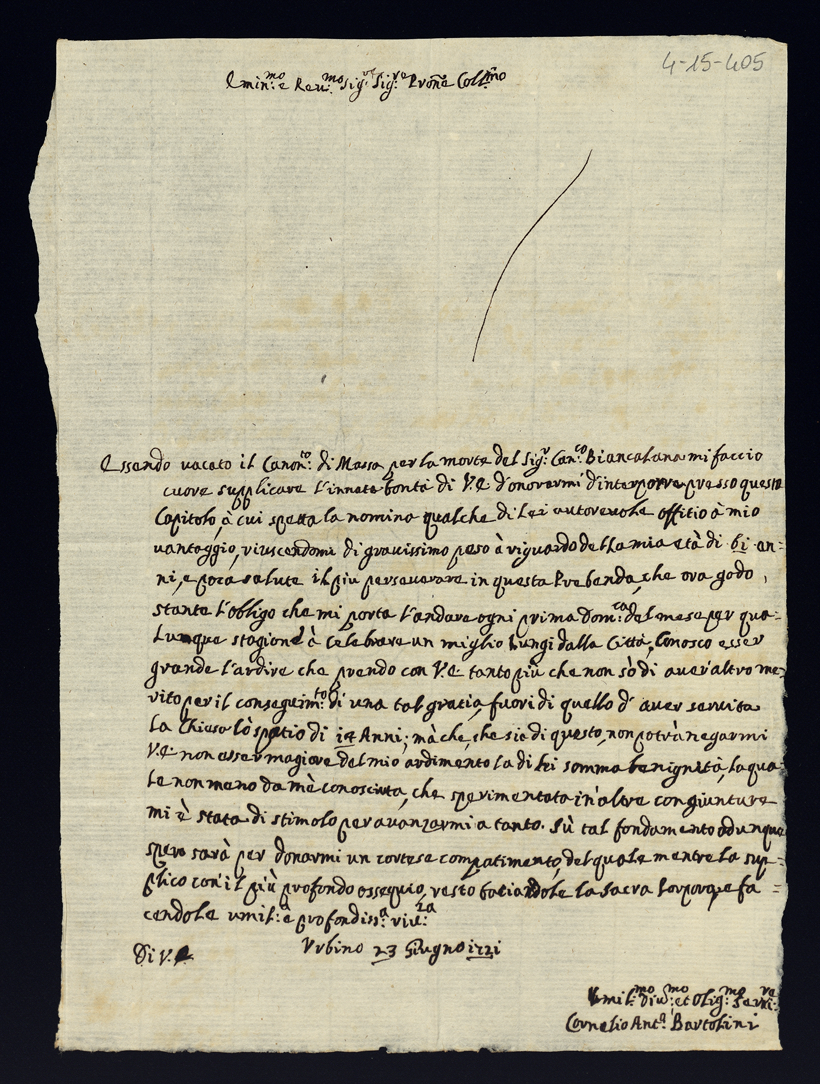 4-15-405
Emin:mo e Reu:mo Sig:r Sig:re Prone Coll:mo
Essendo vacato il Canon:to di Massa per la morte del Sig:r Can:co Biancalana mi faccio
cuore supplicare l'innata bontà di V.E. d'onorarmi d'interporre presso questo
Capitolo, à cui spetta la nomina qualche di Lei autorevole offitio à mio
vantaggio, riuscendomi di gravissimo peso à riguardo della mia età di 61 an=
ni, e poca salute il più perseverare in questa Prebenda, che ora godo,
stante l'obligo che mi porta l'andare ogni prima Dom:ca del mese per qua=
lunque stagione à celebrare un miglio lungi dalla Città, Conosco esser
grande l'ardire che prendo con V.E. tanto più che non sò di aver'altro me=
rito per il conseguim:to di una tal gratia, fuori di quello d'aver servita
la Chiesa lo spatio di 14 Anni; mà che, che sia di questo, non potrà negarmi
V.E. non esser magiore del mio ardimento la di lei somma benignità, la qua=
le non meno da mè conosciuta, che sperimentata in altre congiunture
mi è stata di stimolo per avanzarmi a tanto. Sù tal fondamento adunque
spero sarà per donarmi un cortese compatimento, del quale mentre la sup=
plico con'il più profondo ossequio, resto baciandole la Sacra Porpora, e fa=
cendole umil:a e profondiss:a riv:za
Di V.E.
Urbino 23 Giugno 1721
Umil:mo Div:mo et Oblig:mo Serv:re
Cornelio Ant:o Bartolini